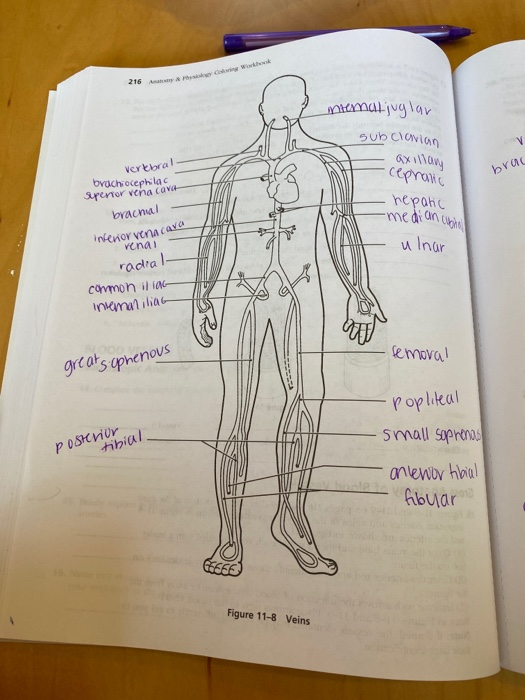 216 Anatomy & Physiology Coloring Workbook
internal juglar
subclavian
vertebral
axillary
brachiocephilac
cephalic
superior vena cava
hepatic
brachial
median cubital
inferior vena cava
renal
ulnar
radial
common iliac
internal iliac
great saphenous
femoral
popliteal
posterior
tibial
small saphenous
anterior tibial
fibular
Figure 11–8 Veins